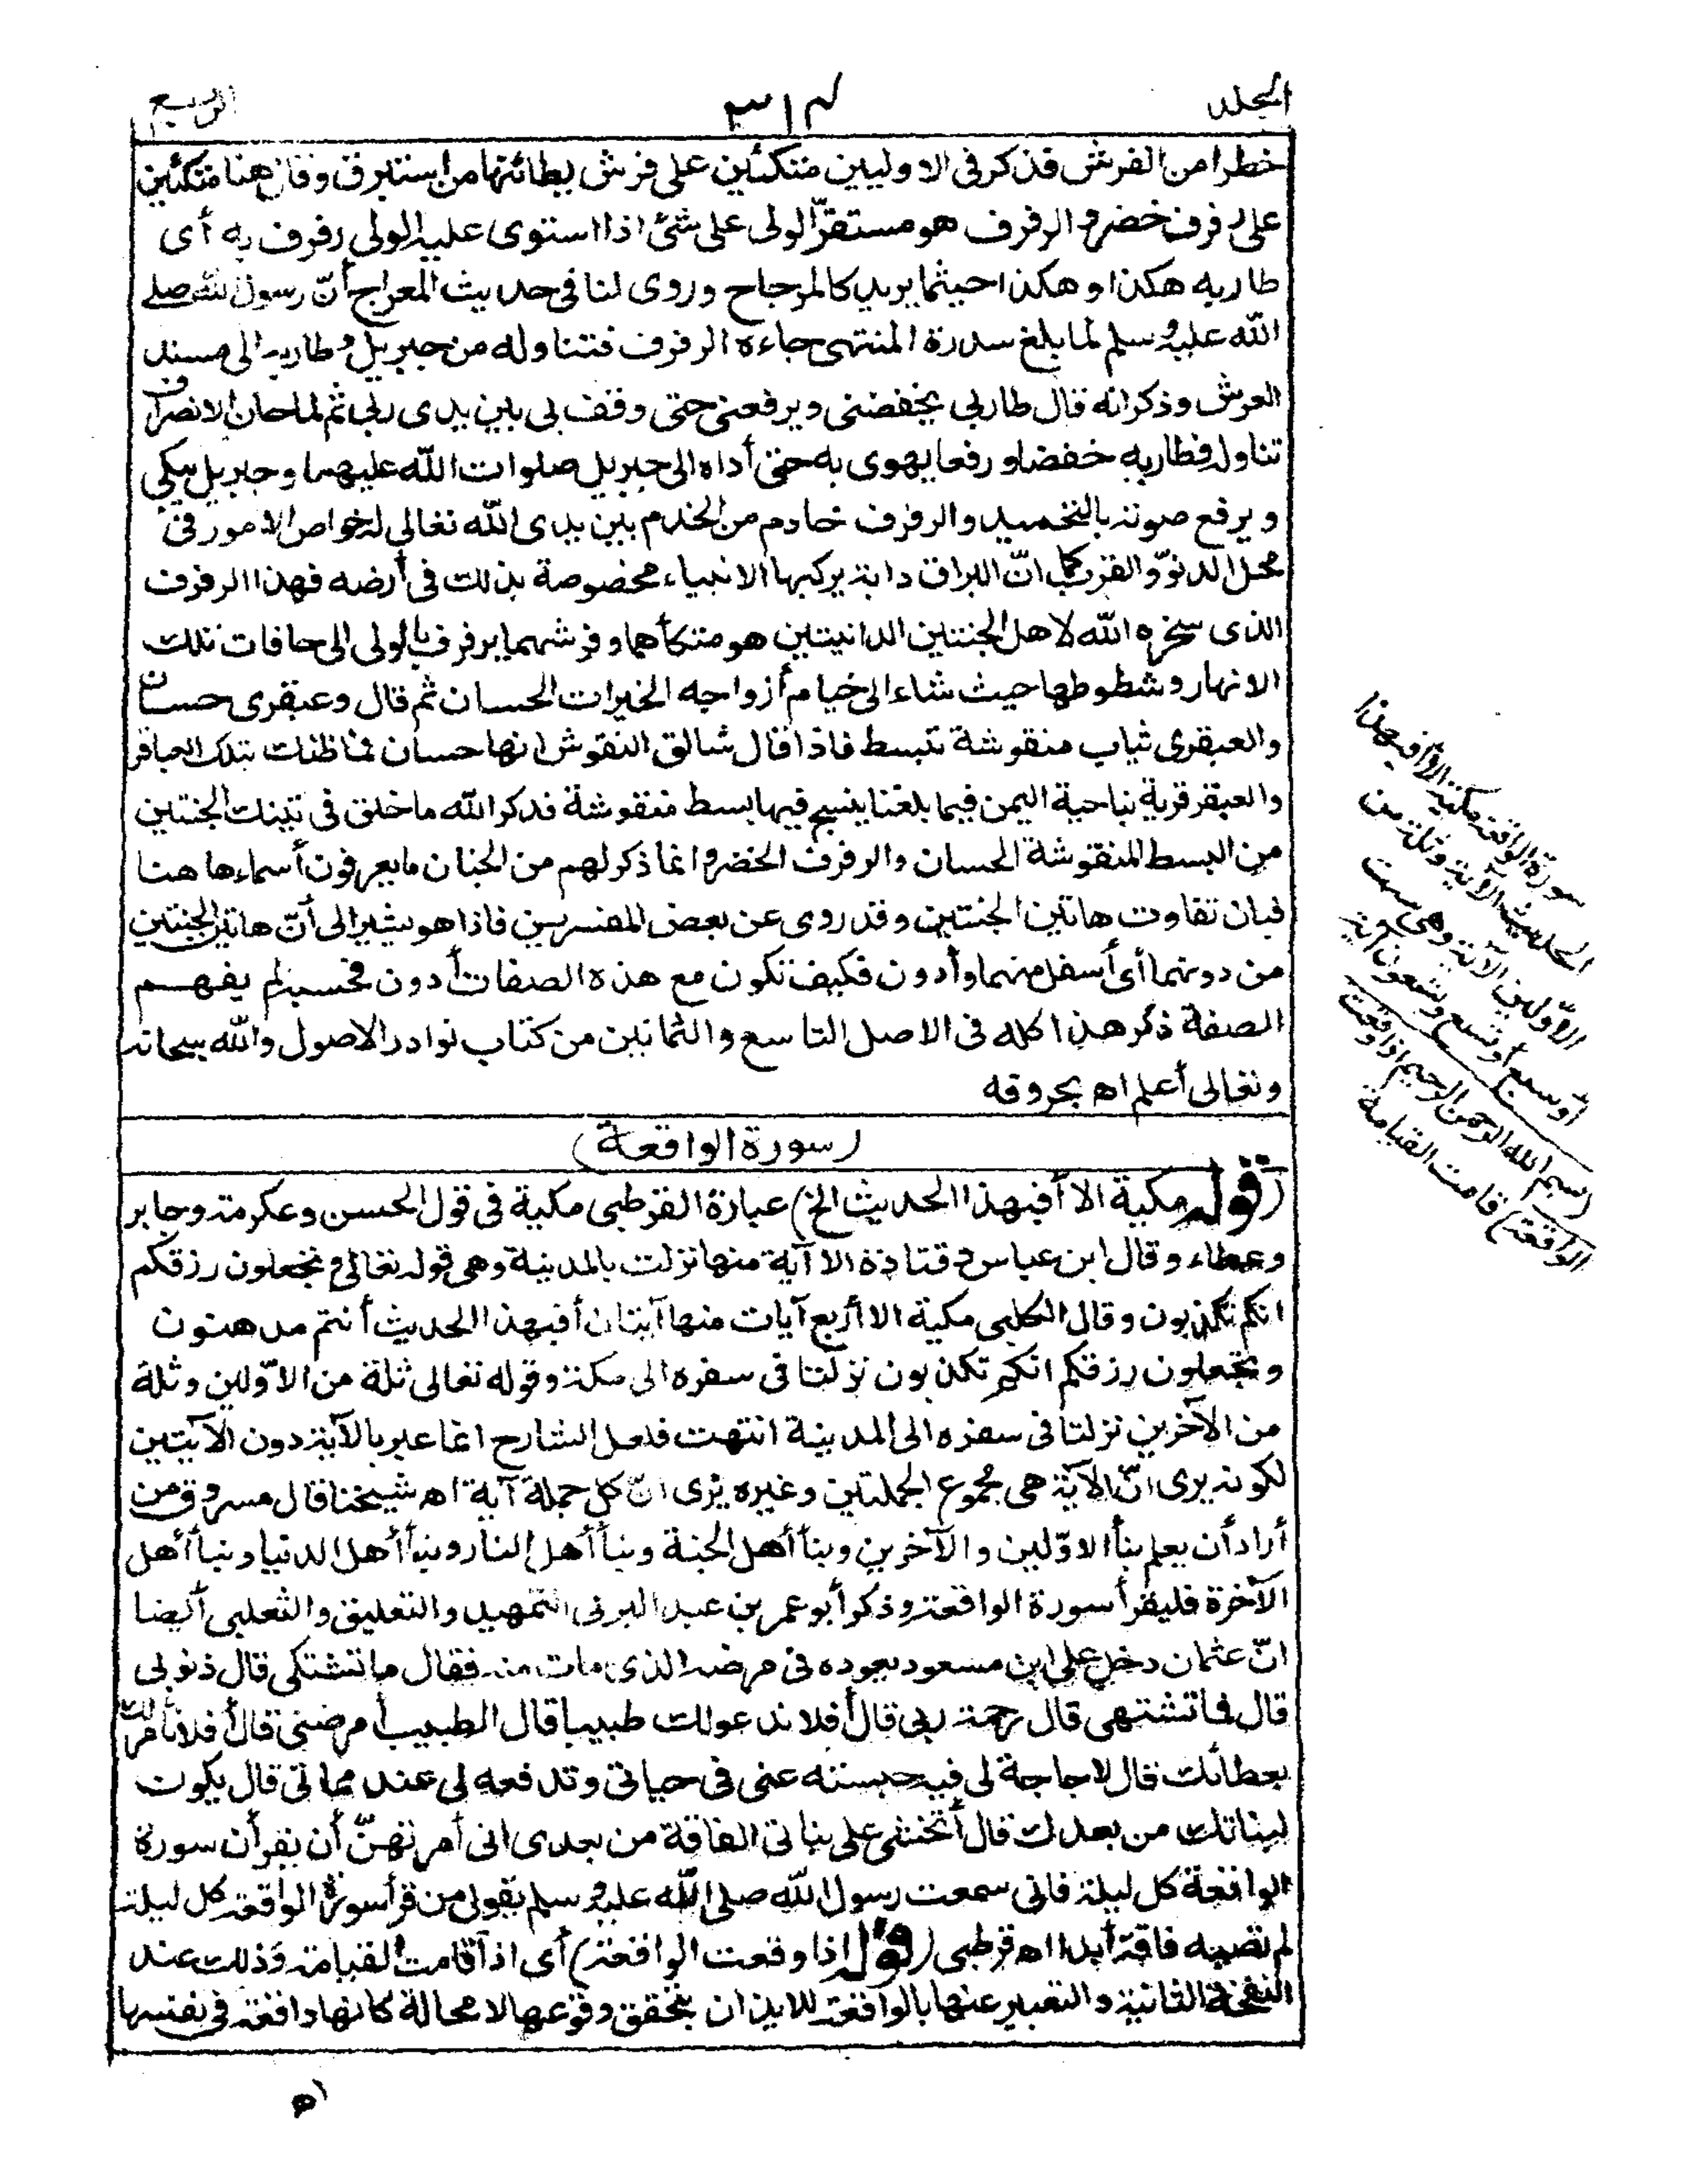 المجلد
٣١٣
الربع
خطرا من الفرش فذكر فى الاوليين متكئين على فرش بطائنها من استبرق وقال هنا متكئين
على رفرف خضر والرفرف هو مستقر الولى على شئ اذا استوى عليه الولى رفرف به أى
طار به هكذا وهكذا حيثما يريد كالمرجاح وروى لنا فى حديث المعراج أنّ رسول الله صلى
الله عليه وسلم لما بلغ سدرة المنتهى جاءه الرفرف فتناوله من جبريل وطار به الى مسند
العرش وذكر انه قال طار بى يخفضنى ويرفعنى حتى وقف بى بين يدى ربى ثم لما حان الانصراف
تناوله فطار به خفضا ورفعا يهوى به حتى أداه الى جبريل صلوات الله عليهما وجبريل يبكى
ويرفع صوته بالتحميد والرفرف خادم من الخدم بين يدى الله تعالى له خواص الامور فى
محل الدنوّ والقرب كما انّ البراق دابة يركبها الانبياء مخصوصة بذلك فى أرضه فهذا الرفرف
الذى سخره الله لاهل الجنتين الدانيتين هو متكأهما وفرشهما يرفرف بالولى الى حافات تلك
الانهار وشطوطها حيث شاء الى خيام أزواجه الخيرات الحسان ثم قال وعبقرى حسان
والعبقرى ثياب منقوشة تبسط فاذا قال خالق النقوش انها حسان فما ظنك بتلك العباقر
والعبقر قرية بناحية اليمن فيما بلغنا ينسج فيها بسط منقوشة فذكر الله ما خلق فى تينك الجنتين
من البسط المنقوشة الحسان والرفرف الخضر وانما ذكر لهم من الجنان ما يعرفون أسماءها هنا
فبان تفاوت هاتين الجنتين وقد روى عن بعض المفسرين فاذا هو يشير الى أنّ هاتين الجنتين
من دونهما أى أسفل منهما وأدون فكيف تكون مع هذه الصفات أدون فحسبه لم يفهم
الصفة ذكر هذا كله فى الاصل التاسع والثمانين من كتاب نوادر الاصول والله سبحانه
وتعالى أعلم اه بحروفه
(سورة الواقعة)
(قوله مكية الا أفبهذا الحديث الخ) عبارة القرطبى مكية فى قول الحسن وعكرمة وجابر
وعطاء وقال ابن عباس وقتادة الا آية منها نزلت بالمدينة وهى قوله تعالى وتجعلون رزقكم
انكم تكذبون وقال الكلبى مكية الا أربع آيات منها آيتان أفبهذا الحديث أنتم مدهنون
وتجعلون رزقكم انكم تكذبون نزلتا فى سفره الى مكة وقوله تعالى ثلة من الاوّلين وثلة
من الآخرين نزلتا فى سفره الى المدينة انتهت فلعل الشارح انما عبر بالآية دون الآيتين
لكونه يرى انّ الآية هى مجموع الجملتين وغيره يرى انّ كل جملة آية اه شيخنا قال مسروق من
أراد أن يعلم نبأ الاوّلين والآخرين ونبأ أهل الجنة ونبأ أهل النار ونبأ أهل الدنيا ونبأ أهل
الآخرة فليقرأ سورة الواقعة وذكر أبو عمر بن عبد البر فى التمهيد والتعليق والثعلبى أيضا
انّ عثمان دخل على ابن مسعود يعوده فى مرضه الذى مات منه فقال ما تشتكى قال ذنوبى
قال فما تشتهى قال رحمة ربى قال أفلا ندعو لك طبيبا قال الطبيب أمرضنى قال أفلا نأمر لك
بعطائك قال لا حاجة لى فيه حبسته عنى فى حياتى وتدفعه لى عند مماتى قال يكون
لبناتك من بعدك قال أتخشى على بناتى الفاقة من بعدى انى أمرتهنّ أن يقرأن سورة
الواقعة كل ليلة فانى سمعت رسول الله صلى الله عليه وسلم يقول من قرأ سورة الواقعة كل ليلة
لم تصبه فاقة أبدا اه قرطبى (قوله اذا وقعت الواقعة) أى اذا قامت القيامة وذلك عند
النفخة الثانية والتعبير عنها بالواقعة للايذان بتحقق وقوعها لا محالة كانها واقعة فى نفسها
سورة الواقعة مكية الا أفبهذا
الحديث الآية وثلة من
الاوّلين الآية وهى ست
أو سبع أو تسع وتسعون آية
(بسم الله الرحمن الرحيم اذا وقعت
الواقعة) قامت القيامة